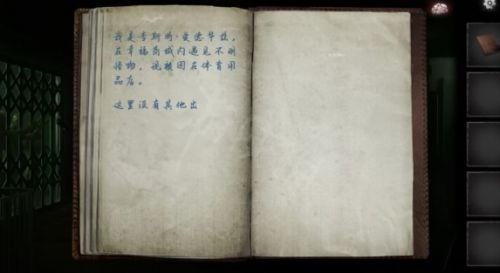 我是李斯昕·爱德华兹，
在幸福商城内遇见不明
怪物，我被困在体育用
品店。
这里没有其他出